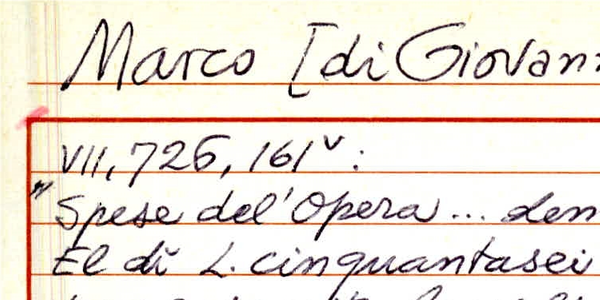 Marco [di Giovan
VII, 726, 161v:
"Spese del' Opera ... den
El dì L. cinquantasei